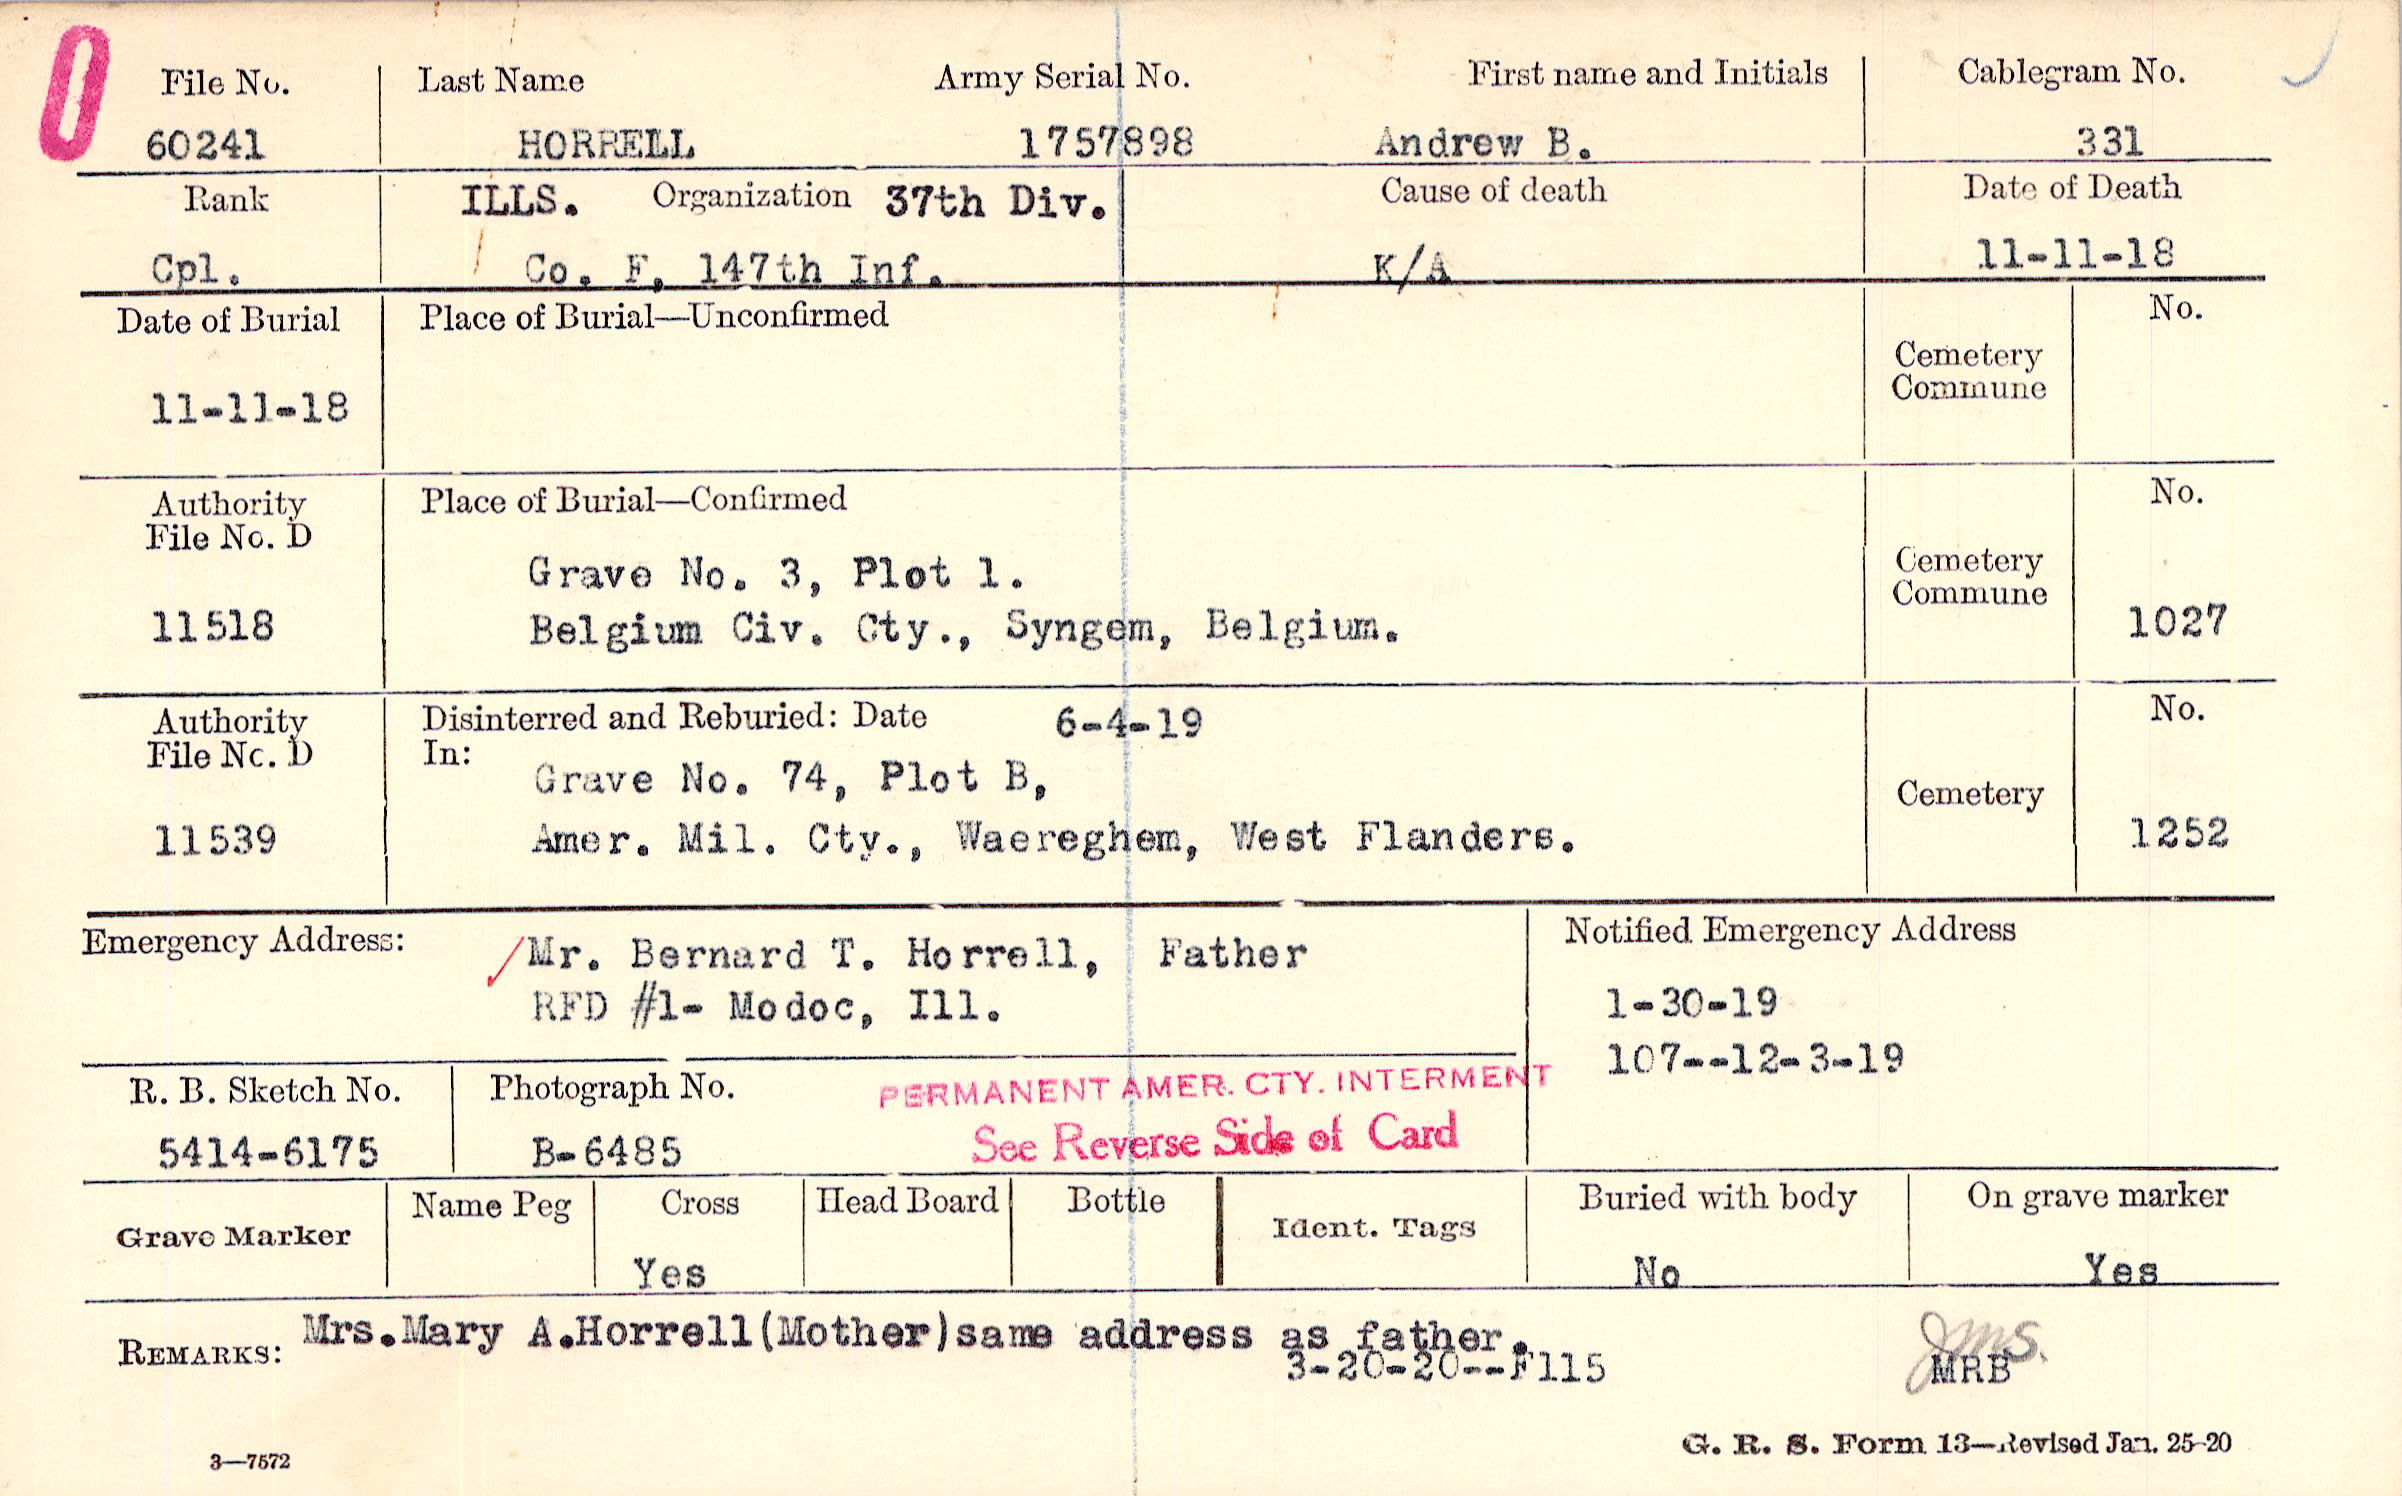 0
File No. Last Name Army Serial No. First name and Initials Cablegram No.
60241 HORRELL 1757898 Andrew B. 331
Rank ILLS. Organization 37th Div. Cause of death Date of Death
Cpl. Co. F, 147th Inf. K/A 11-11-18
Date of Burial Place of Burial—Unconfirmed No.
Cemetery
Commune
11-11-18
Authority Place of Burial—Confirmed No.
File No. D
Grave No. 3, Plot 1. Cemetery
Commune
11518 Belgium Civ. Cty., Syngem, Belgium. 1027
Authority Disinterred and Reburied: Date 6-4-19 No.
File No. D In:
Grave No. 74, Plot B, Cemetery
11539 Amer. Mil. Cty., Waereghem, West Flanders. 1252
Emergency Address: Mr. Bernard T. Horrell, Father Notified Emergency Address
RFD #1- Modoc, Ill. 1-30-19
107--12-3-19
R. B. Sketch No. Photograph No. PERMANENT AMER. CTY. INTERMENT
5414-6175 B-6485 See Reverse Side of Card
Grave Marker Name Peg Cross Head Board Bottle Ident. Tags Buried with body On grave marker
Yes No Yes
REMARKS: Mrs.Mary A.Horrell(Mother)same address as father.
3-20-20--F115 JMS.
MRB
3—7572 G. R. S. Form 13—Revised Jan. 25-20